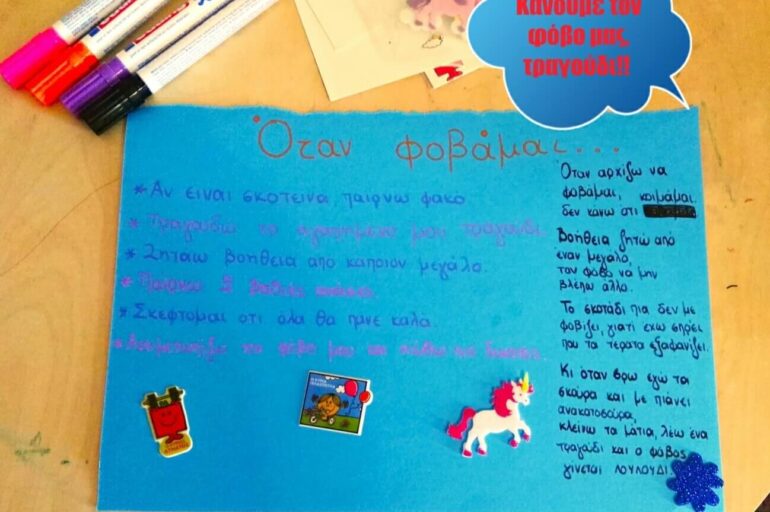 Κάνουμε τον
φόβο μας,
τραγούδι!!
Όταν φοβάμαι...
*Αν ειναι σκοτεινα παιρνω φακο
*Τραγουδώ το αγαπημενο μου τραγουδι
*Ζηταω βοηθεια απο καποιον μεγαλο.
*Παιρνω 5 βαθιες
*Σκεφτομαι οτι ολα θα πανε καλα.
το φοβο μου και
Οταν αρχίζω να
φοβάμαι, κοιμάμαι.
δεν κάνω οτι
Βοήθεια ζητώ από
έναν μεγάλο,
τον φόβο να μην
βλέπω άλλο.
Το σκοτάδι πια δεν με
φοβίζει, γιατί εχω σπρέι
που τα τέρατα εξαφανίζει.
Κι όταν βρω εγώ τα
σκούρα και με πιάνει
ανακατοσούρα,
κλείνω τα μάτια, λέω ένα
τραγούδι και ο φόβος
γίνεται λουλούδι.